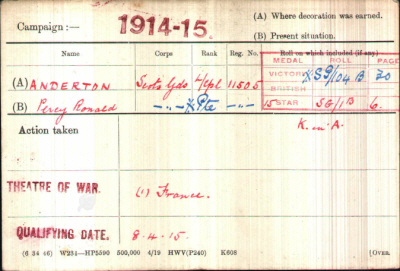 Campaign :— 1914-15. (A) Where decoration was earned.
(B) Present situation.
Name Corps Rank Reg. No. Roll on which included (if any).
MEDAL ROLL PAGE
(A) ANDERTON Scots Gds L/Cpl 11505 VICTORY SG/104 B 20
BRITISH
(B) Percy Ronald —„— X Pte —„— 15 STAR SG/1B 6.
Action taken K. in A.
THEATRE OF WAR. (1) France.
QUALIFYING DATE. 8-4-15.
(6 34 46) W234—HP5590 500,000 4/19 HWV(P240) K608 [OVER.